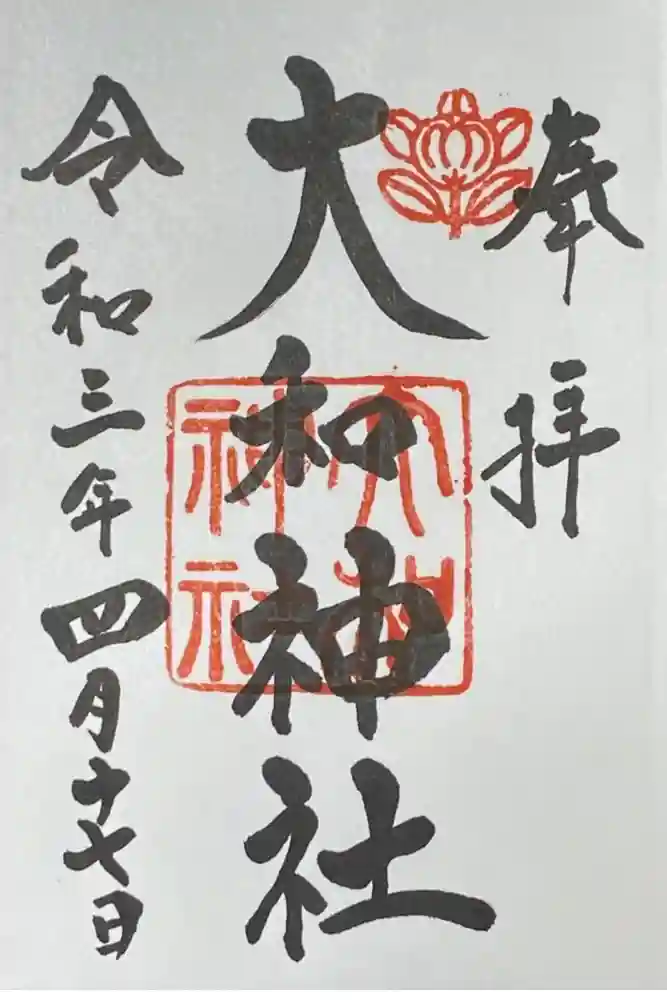 奉拝
大和神社
大和神社
令和三年四月十七日